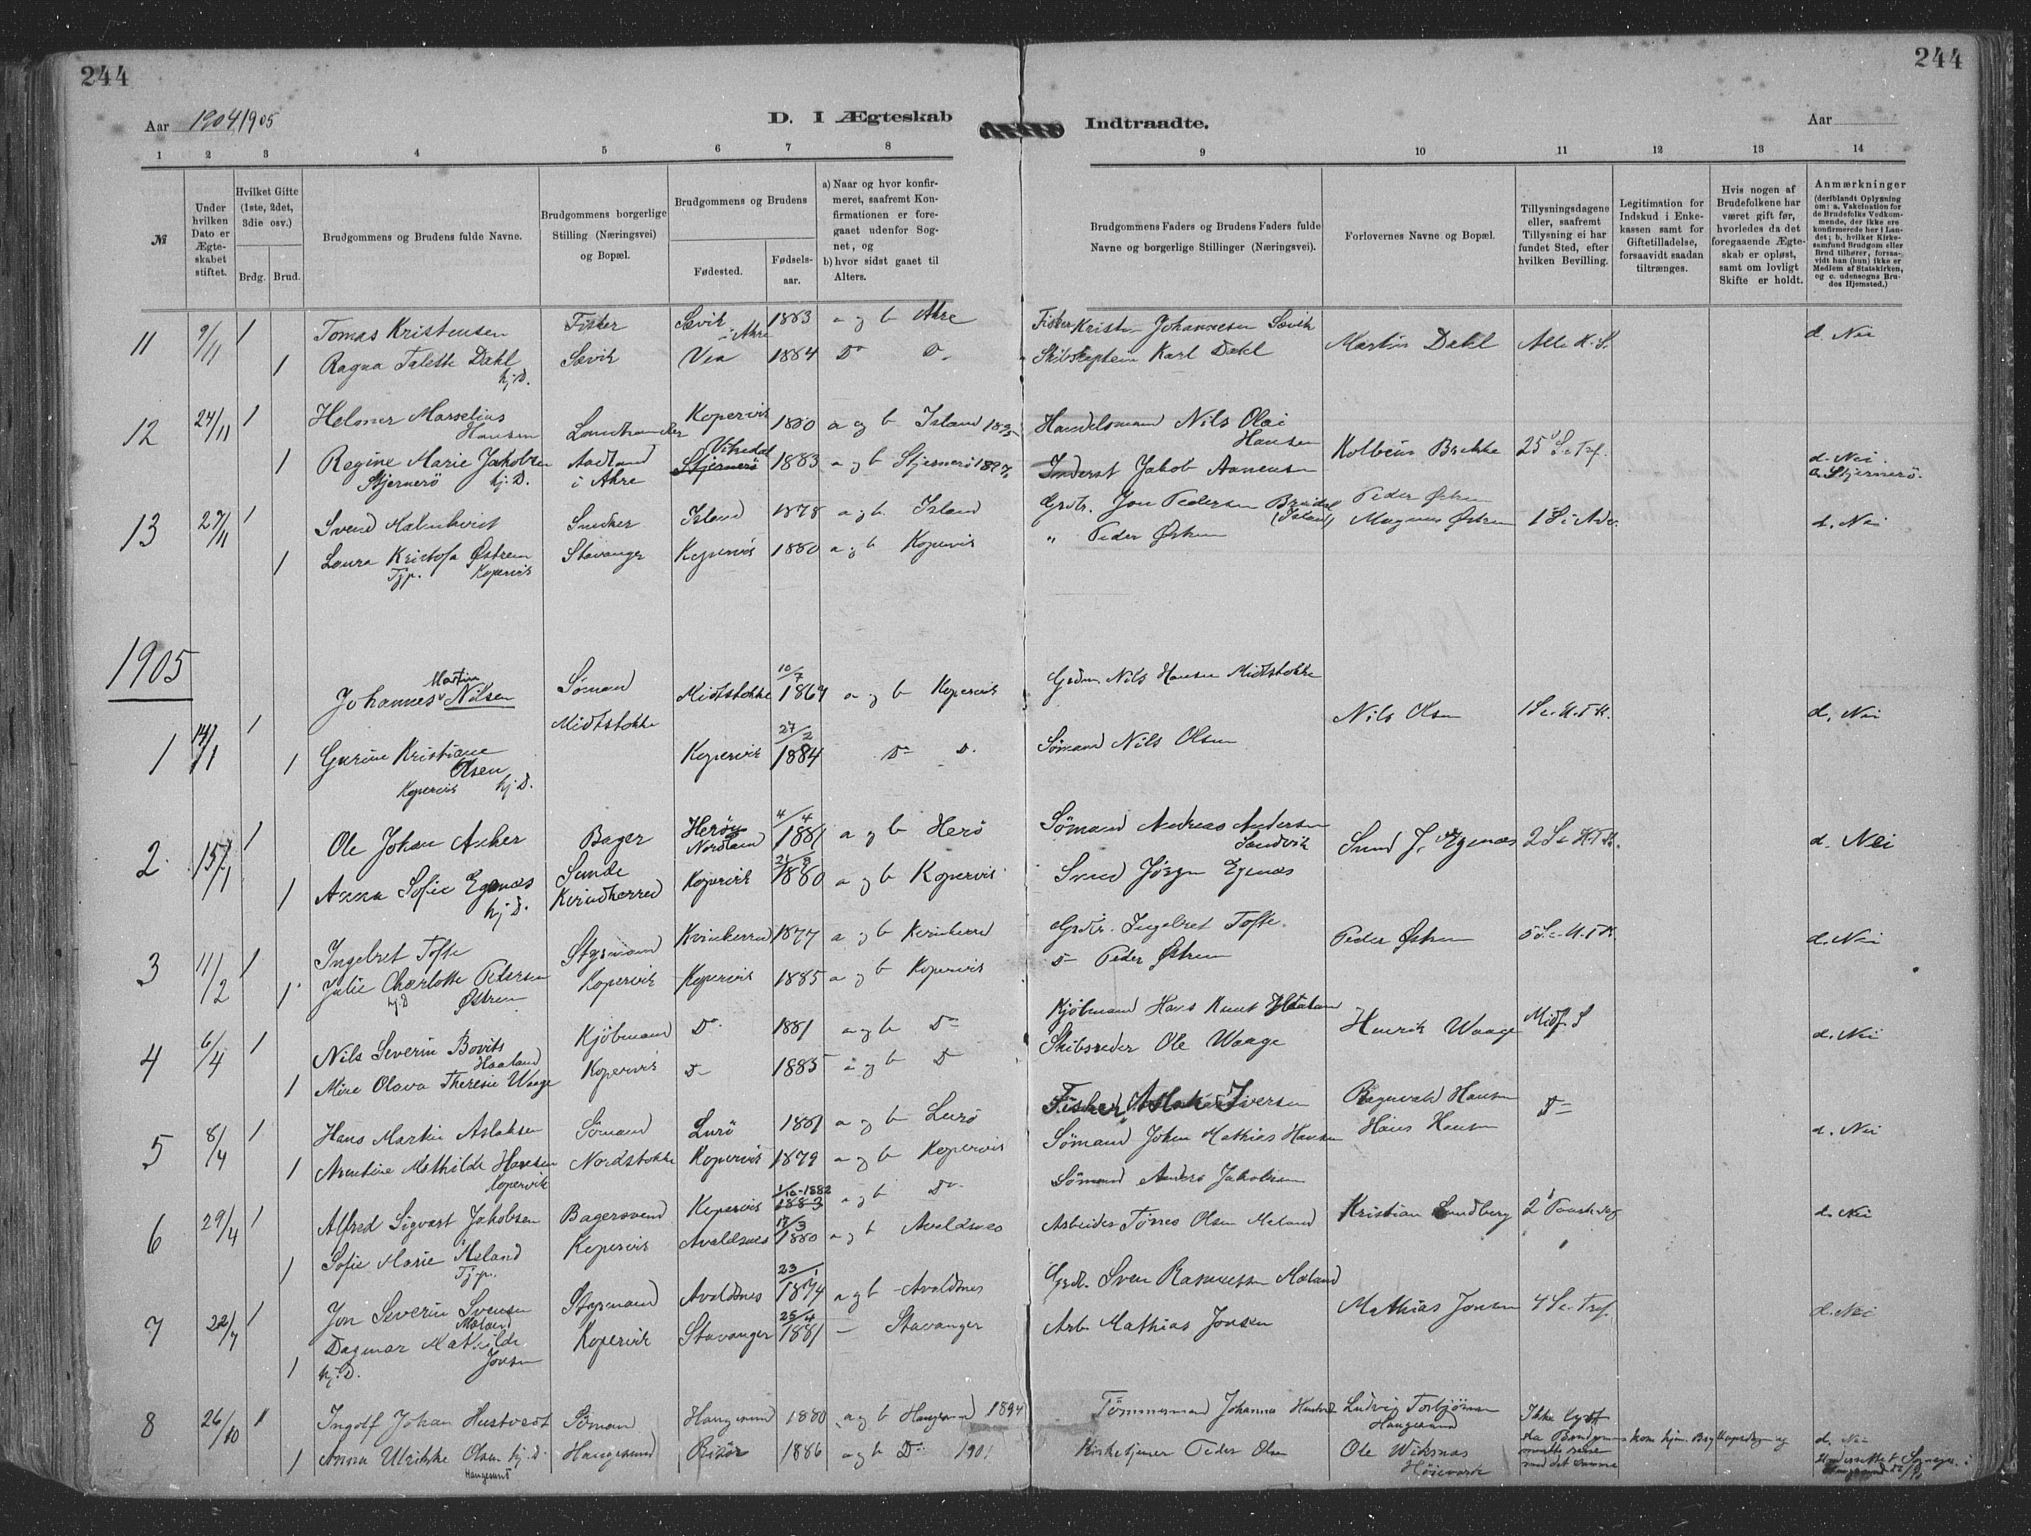 244
244
Aar 1904 1905
D. I Ægteskab
Indtraadte.
Aar
1 2 3 4 5 6 7 8 9 10 11 12 13 14
№
Under hvilken Dato er Ægteskabet stiftet.
Hvilket Gifte (1ste, 2det, 3die osv.)
Brdg. Brud.
Brudgommens og Brudens fulde Navne.
Brudgommens borgerlige Stilling (Næringsvei) og Bopæl.
Brudgommens og Brudens
Fødested.
Fødselsaar.
a) Naar og hvor konfirmeret, saafremt Konfirmationen er foregaaet udenfor Sognet, og
b) hvor sidst gaaet til Alters.
Brudgommens Faders og Brudens Faders fulde Navne og borgerlige Stillinger (Næringsvei).
Forlovernes Navne og Bopæl.
Tillysningsdagene eller, saafremt Tillysning ei har fundet Sted, efter hvilken Bevilling.
Legitimation for Indskud i Enkekassen samt for Giftetilladelse, forsaavidt saadan tiltrænges.
Hvis nogen af Brudefolkene har været gift før, hvorledes da det foregaaende Ægteskab er opløst, samt om lovligt Skifte er holdt.
Anmærkninger (deriblandt Oplysning om: a. Vakcination for de Brudefolks Vedkommende, der ikke ere konfirmerede her i Landet; b. hvilket Kirkesamfund Brudgom eller Brud tilhører, forsaavidt han (hun) ikke er Medlem af Statskirken, og c. udensogns Brudes Hjemsted.)
11 9/11 1 Tomas Kristensen Fisker Sævik i Akre 1883 a og b Akre Fisker Kristen Johannesen Sævik Martin Dahl Alle H. S. d. Nei
1 Ragna Talette Dahl hj. D. Sævik Vea 1884 Do Do Skibskaptein Karl Dahl
12 24/11 1 Helmer Marselius Hansen Landhandler Kopervik 1880 a og b Island 1895 Handelsmand Nils Olai Hansen Kolbeius Brekke 25 S. e Tref. d. Nei
1 Regine Marie Jakobsen Stjernerö hj. D. Aadland i Akre Vikedal Stjernerö 1883 a og b Stjernerö 1897 Inderst Jakob Aanensen c. Stjernerö.
13 27/11 1 Svend Malmkvist Snedker Island 1878 a og b Island Grdbr. Jon Pedersen Breidal (Island) Peder Østrem Magnus Østrem 1 S. i Adv. d. Nei
1 Laura Kristofa Østrem Tjp. Kopervik Stavanger Kopervik 1880 a og b Kopervik " Peder Østrem
1905
1 14/1 1 Johannes Martin Nilsen Sömand Midtstokke 10/7 1864 a og b Kopervik Grdm. Nils Hansen Midtstokke Nils Olsen 1 S. e. H. T. K. d. Nei
1 Gurine Kristiane Olsen Kopervik hj. D. Midtstokke Kopervik 27/2 1884 Do D. Sömand Nils Olsen
2 15/1 1 Ole Johan Anker Bager Heröy Nordland 4/4 1881 a og b Herö Sömand Andreas Andersen Sandvik Svend J. Egenæs 2 S. e. H. T. K. d. Nei
1 Anna Sofie Egenæs hj. D. Sunde Kvindherred Kopervik 21/9 1880 a og b Kopervik Svend Jörgen Egenæs
3 11/2 1 Ingebret Tofte Styrmand Kvinherred 1877 a og b Kvinherred Grdbr. Ingebret Tofte Peder Østrem 5 S. e. H. T. K. d. Nei
1 Julie Charlotte Pedersen Østrem hj. D Kopervik Kopervik 1885 a og b Kopervik Do Peder Østrem
4 6/4 1 Nils Severin Bovits Haaland Kjöbmand Do 1881 a og b Do Kjöbmand Hans Knut Haaland Henrik Waage Midf. S d. Nei
1 Mine Olava Theresie Waage Kopervik Do 1885 a og b D Skibsreder Ole Waage
5 8/4 1 Hans Martin Aslaksen Sömand Lurö 1881 a og b Lurö Fisker Aslak Iversen Ragnvald Hansen Do d. Nei
1 Arentine Mathilde Hansen Kopervik Nordstokke Kopervik 1879 a og b Kopervik Sömand Johan Mathias Hansen Hans Hansen
6 29/4 1 Alfred Sigvart Jakobsen Bagersvend Kopervik 1/10-1882 1883 a og b Do Sömand Anders Jakobsen Kristian Lundberg 2 Paaskedag d. Nei
1 Sofie Marie Mæland Tj. p. Kopervik Avaldsnes 17/3 1880 a og b Avaldsnes Arbeider Tönes Olsen Mæland
7 22/7 1 Jon Severin Svensen Mæland Styrmand Avaldsnes 23/1 1874 a og b Avaldsnes Grdbr. Sven Rasmussen Mæland Mathias Jonsen 4 S. e Tref. d. Nei
1 Dagmar Mathilde Jonsen hj. D. Kopervik Stavanger 25/4 1881 — Stavanger Arb. Mathias Jonsen
8 26/10 1 Ingolf Johan Hustvedt Sömand Haugesund 1880 a og b Haugesund 1894 Tömmermand Johannes Hustvedt Ludvig Torbjörnsen Haugesund Ikke lyst da Brudgommen kom hjem maatte reise med det samme d. Nei
1 Anna Ulrikke Olsen hj. D. Haugesund Haugesund Risör 1886 a og b Do 1901 Kirketjener Peder Olsen Ole Wiksnæs Höievarde